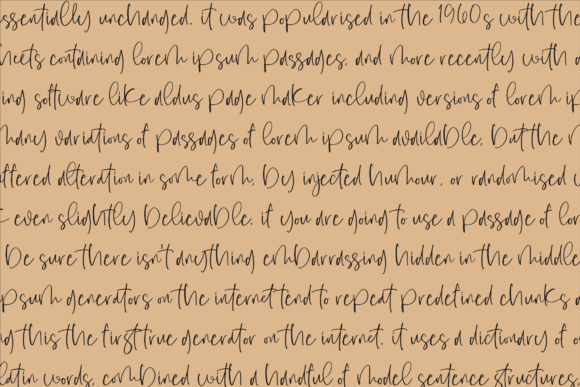 ssentially unchanged. it was popularised in the 1960s with the
heets containing lorem ipsum passages, and more recently with a
ing software like aldus page maker including versions of lorem ip
many variations of passages of lorem ipsum available, but the m
uffered alteration in some form, by injected humour, or randomised w
t even slightly believable. if you are going to use a passage of lor
be sure there isn't anything embarrassing hidden in the middle
psum generators on the internet tend to repeat predefined chunks a
ng this the first true generator on the internet. it uses a dictionary of o
latin words, combined with a handful of model sentence structures,